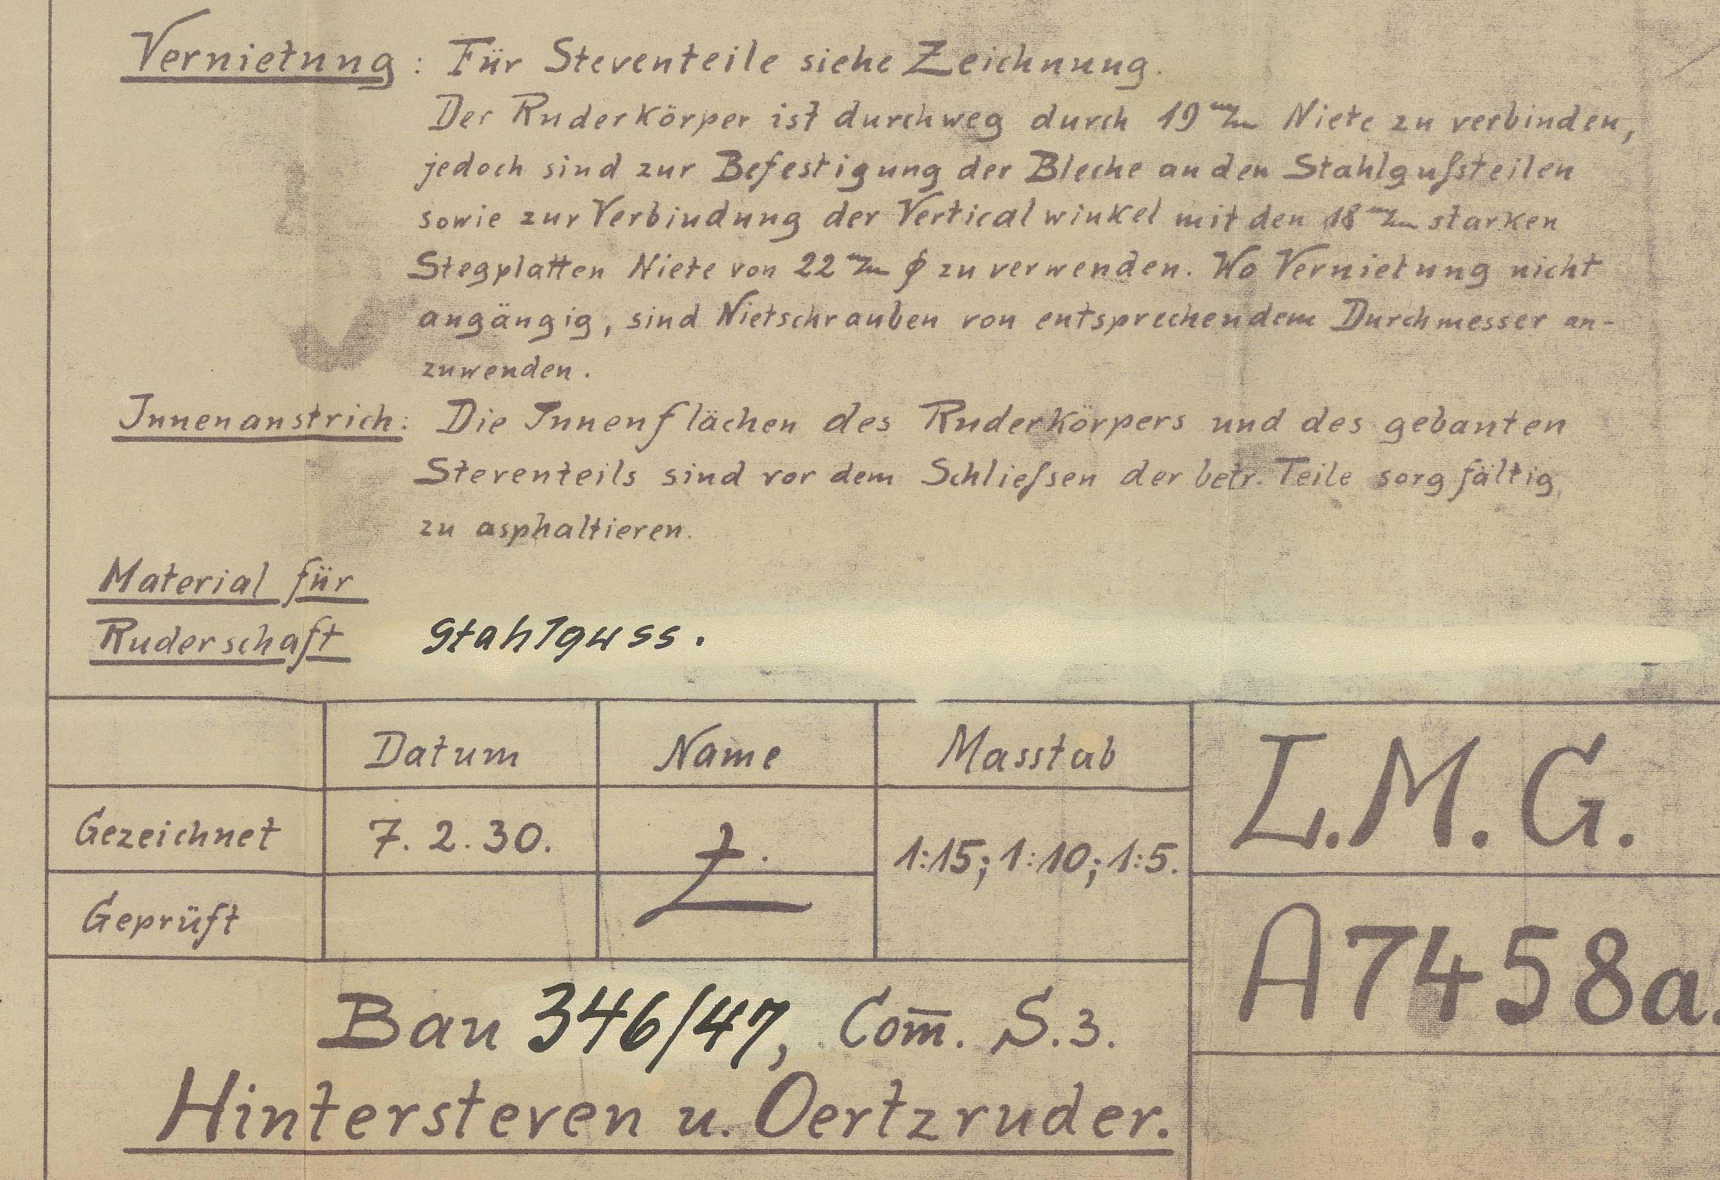 Vernietung: Für Steventeile siehe Zeichnung.
Der Ruderkörper ist durchweg durch 19 m/m Niete zu verbinden,
jedoch sind zur Befestigung der Bleche an den Stahlgußteilen
sowie zur Verbindung der Verticalwinkel mit den 18 m/m starken
Stegplatten Niete von 22 m/m ϕ zu verwenden. Wo Vernietung nicht
angängig, sind Nietschrauben von entsprechendem Durchmesser an-
zuwenden.
Innenanstrich: Die Innenflächen des Ruderkörpers und des gebauten
Steventeils sind vor dem Schließen der betr. Teile sorgfältig
zu asphaltieren.
Material für
Ruderschaft Stahlguss.
Datum Name Masstab
Gezeichnet 7.2.30. 1:15; 1:10; 1:5.
Geprüft
L.M.G.
A7458a.
Bau 346/47, Com̅. S.3.
Hintersteven u. Oertzruder.